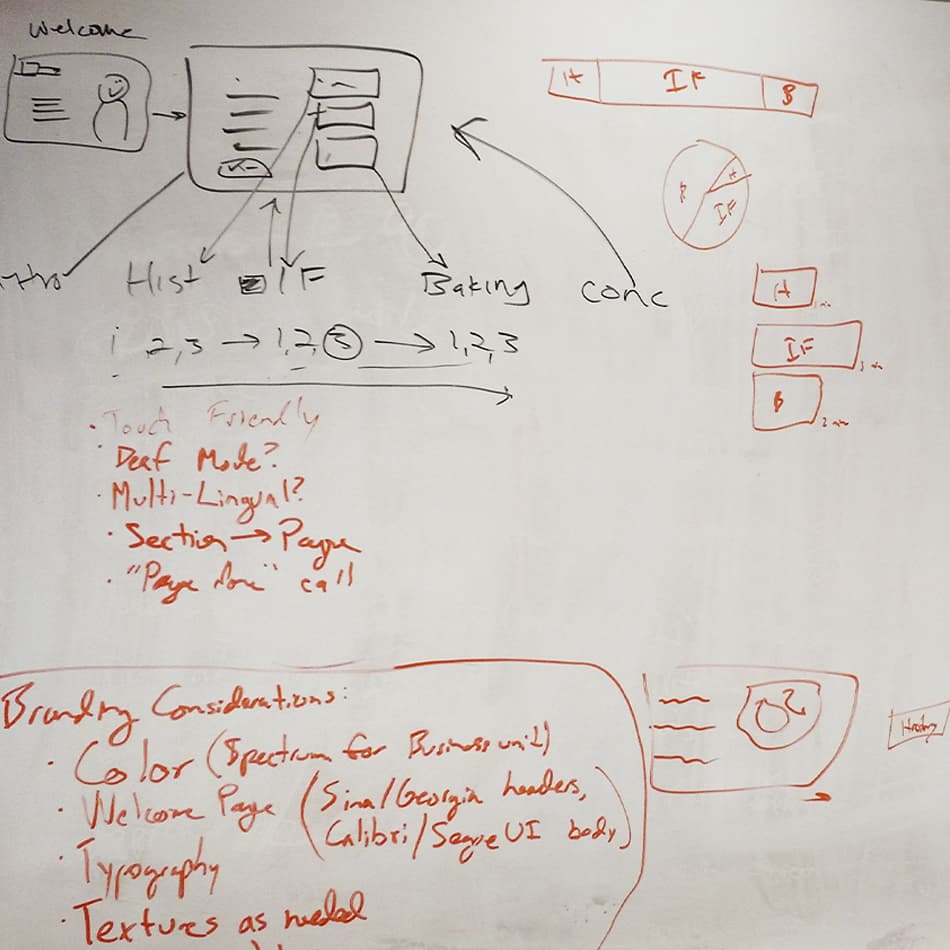 Welcome
H IF B
H
B IF
Hist IF Baking conc
H
IF
B
2 min
2,3 → 1,2,3 → 1,2,3
· Touch Friendly
· Deaf Mode?
· Multi-Lingual?
· Section → Page
· "Page done" call
Branding Considerations:
· Color (Spectrum for Business unit)
· Welcome Page (Sina/Georgia headers,
Calibri/Segoe UI body)
· Typography
· Textures as needed